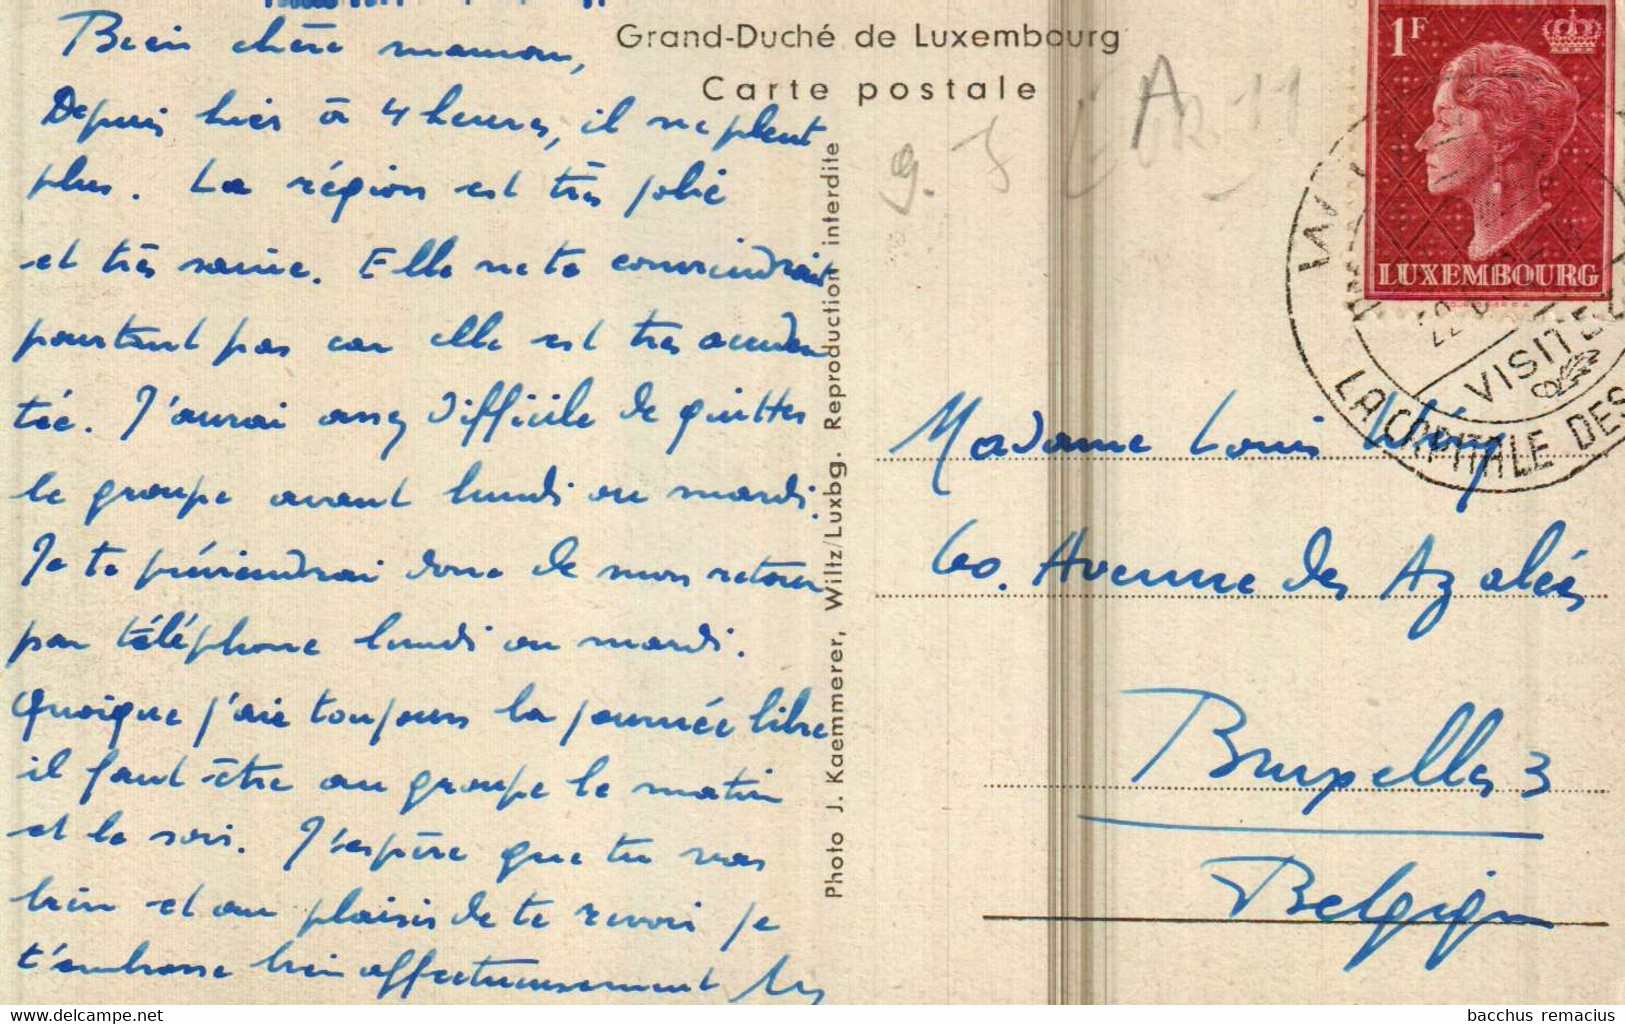 Bien chère maman,
Depuis hier à 4 heures, il ne pleut
plus. La région est très jolie
et très saine. Elle ne te conviendrait
pourtant pas car elle est très acciden
tée. J'aurai assez difficile de quitter
le groupe avant lundi ou mardi.
Je te préviendrai donc de mon retour
par téléphone lundi ou mardi.
Quoique j'aie toujours la journée libre
il faut être au groupe le matin
et le soir. J'espère que tu vas
bien et au plaisir de te revoir je
t'embrasse bien affectueusement
Grand-Duché de Luxembourg
Carte postale
Photo J. Kaemmerer, Wiltz/Luxbg. Reproduction interdite
A
11
1F
LUXEMBOURG
VISITEZ
LA CAPITALE DES
Madame Louis
60. Avenue des Azalées
Bruxelles 3
Belgique
bacchus remacius
www.delcampe.net